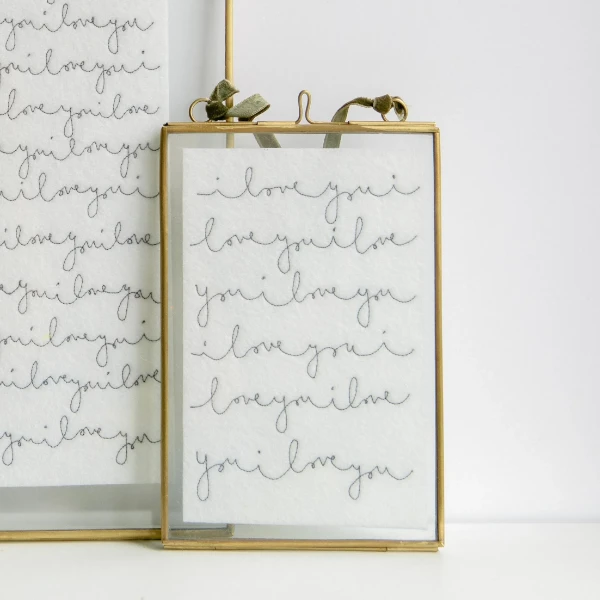 you i love you
you i love you i
love you i love
you i love you
i love you i
i love you i love
you i love you
you i love you i
i love you i love
you i love you
i love you i
love you i love
you i love you
i love you i
love you i love
you i love you